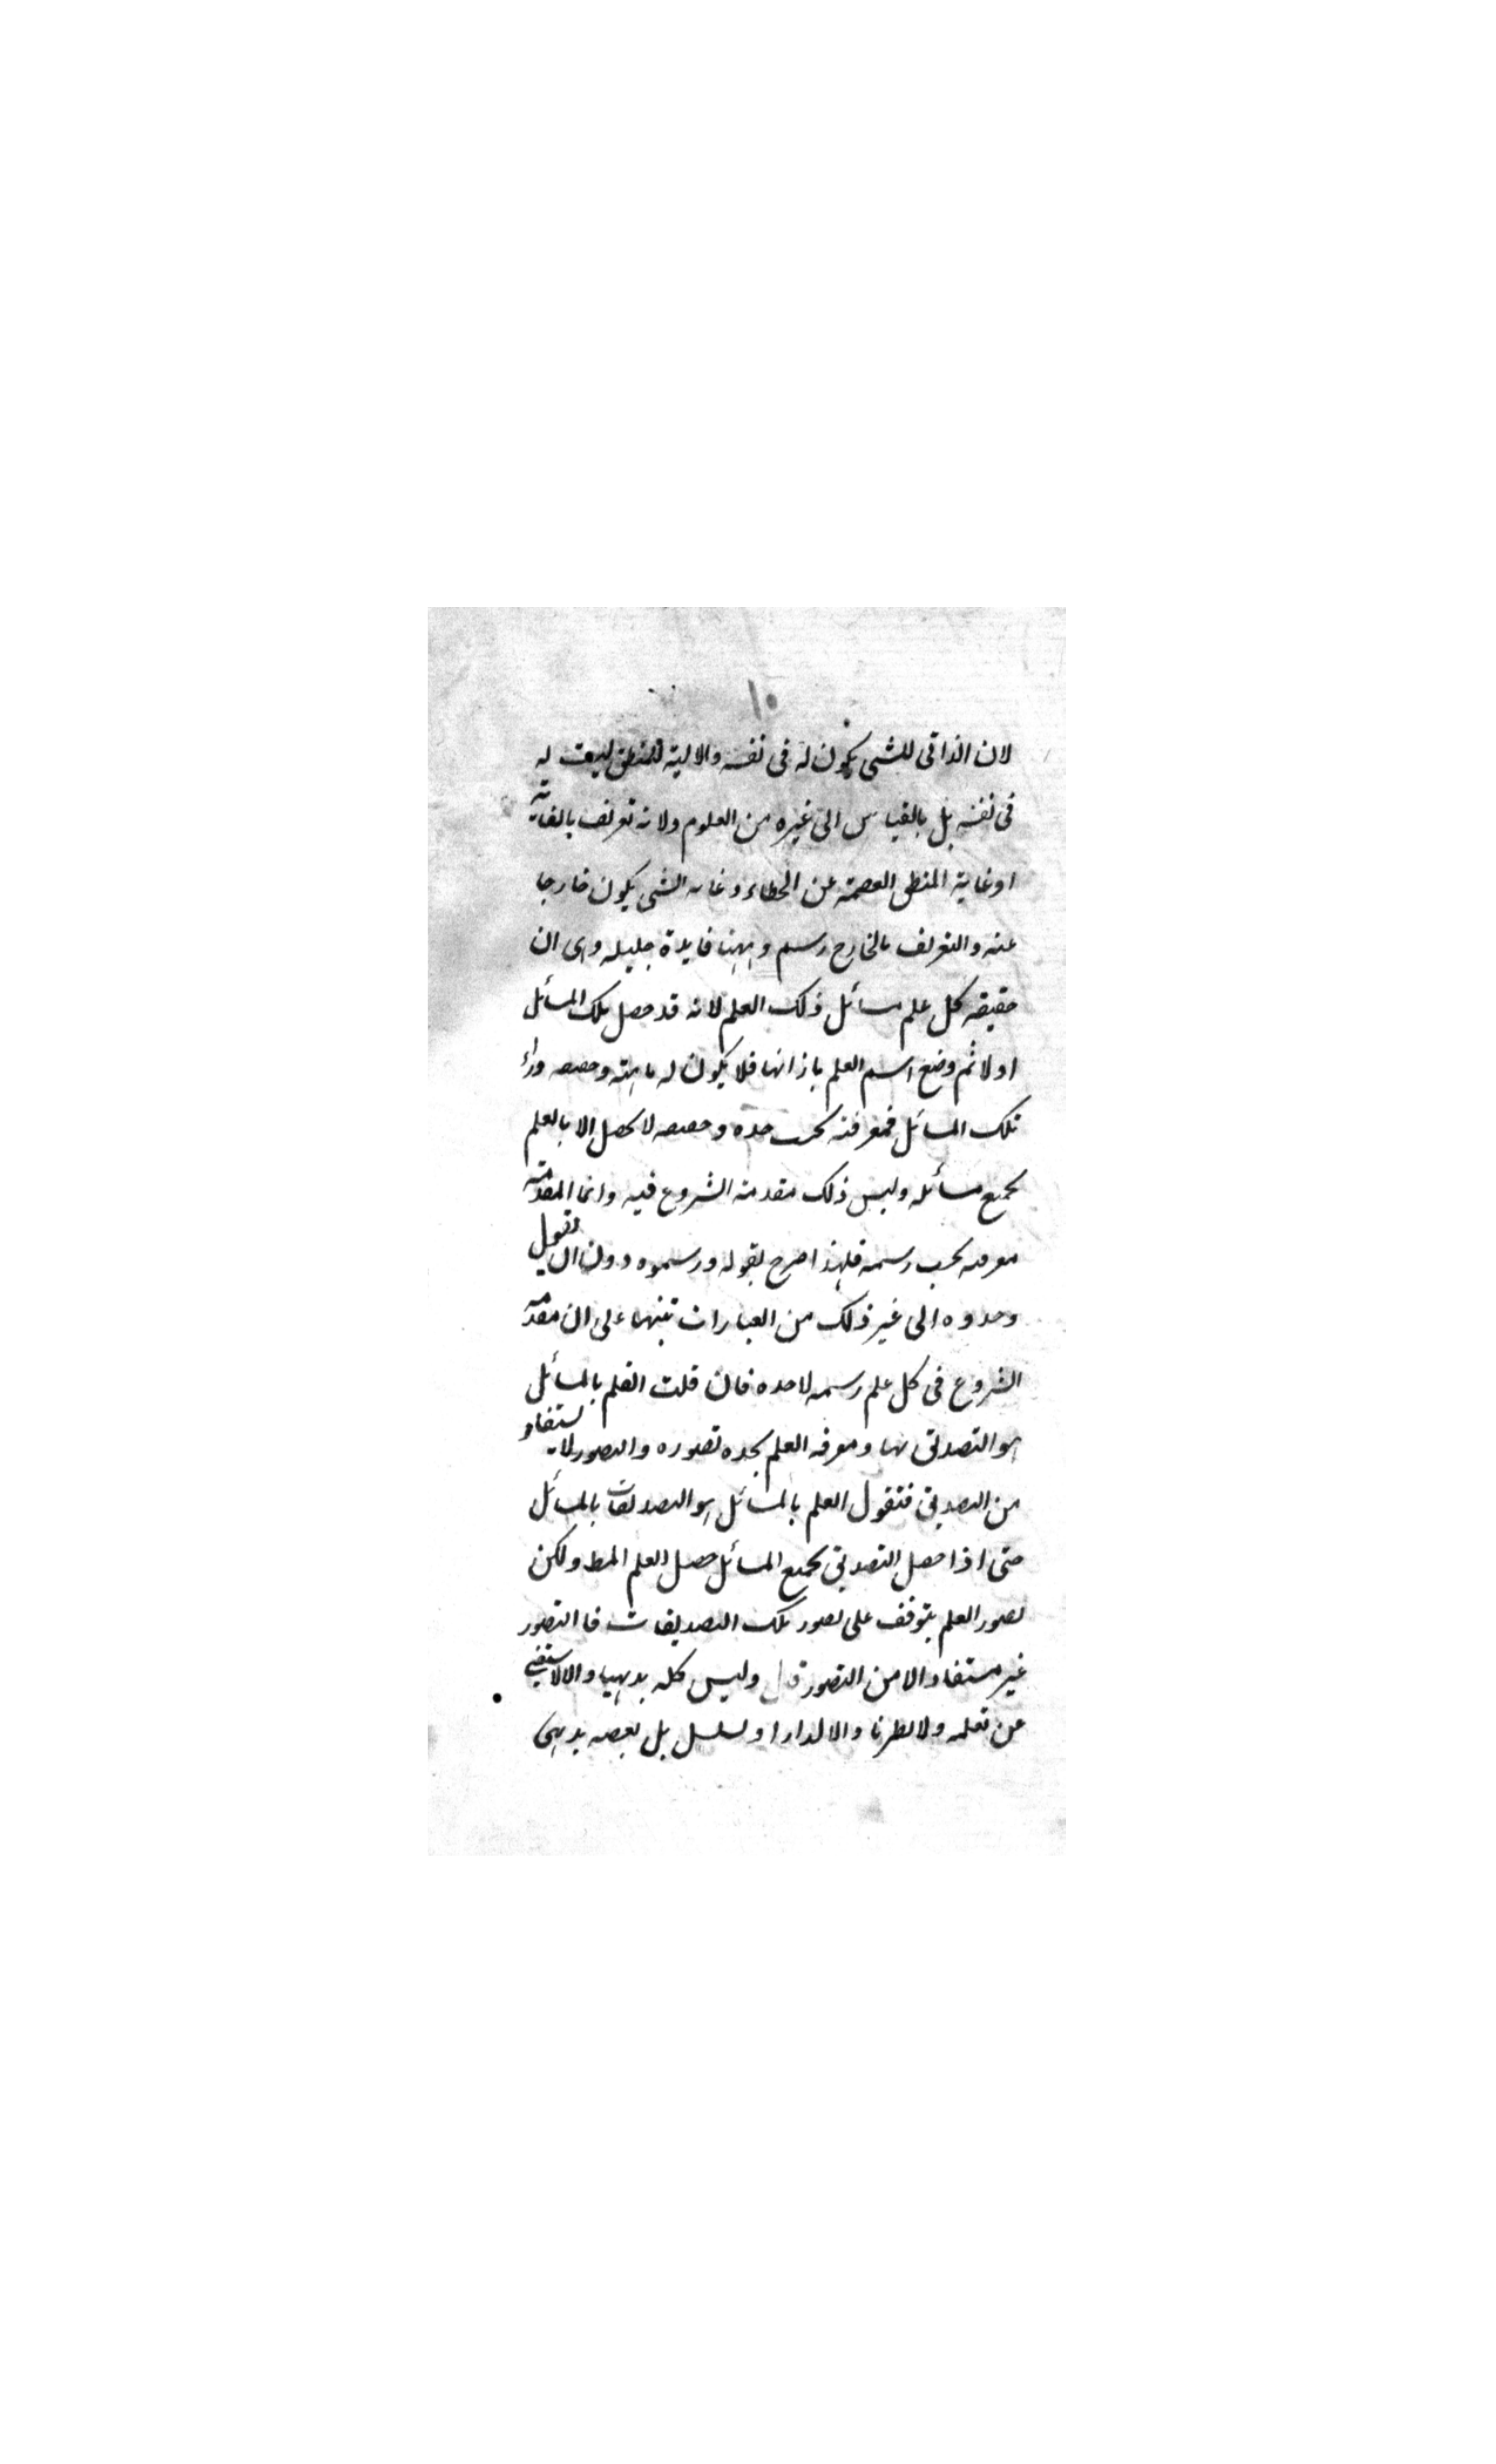 ١٠
لان الذاتى للشى يكون له فى نفسه والالية للمنطق ليست له
فى نفسه بل بالقياس الى غيره من العلوم ولانه تعريف بالغاية
اوغاية المنطق العصمة عن الخطاء وغاية الشى يكون خارجا
عنه والتعريف بالخارج رسم وههنا فايدة جليله وهى ان
حقيقه كل علم مسائل ذلك العلم لانه قد حصل تلك المسائل
اولا ثم وضع اسم العلم بازائها فلا يكون له ماهية وحقيقه وراء
تلك المسائل فمعرفته بحسب حده وحقيقه لا تحصل الا بالعلم
بجميع مسائله وليس ذلك مقدمة الشروع فيه وانما المقدمة
معرفته بحسب رسمه فلهذا صرح بقوله ورسموه دون ان يقول
وحدوه الى غير ذلك من العبارات تنبيها على ان مقدمه
الشروع فى كل علم رسمه لا حده فان قلت العلم بالمسائل
هو التصديق بها ومعرفه العلم بحده تصوره والتصور لا يستفاد
من التصديق فنقول العلم بالمسائل هو التصديقات بالمسائل
حتى اذا حصل التصديق بجميع المسائل حصل العلم المط ولكن
تصور العلم يتوقف على تصور تلك التصديقات فا التصور
غير مستفاد الا من التصور قال وليس كله بديهيا والا لاستغنى
عن تعلمه ولا نظريا والا لدار او تسلسل بل بعضه بديهى